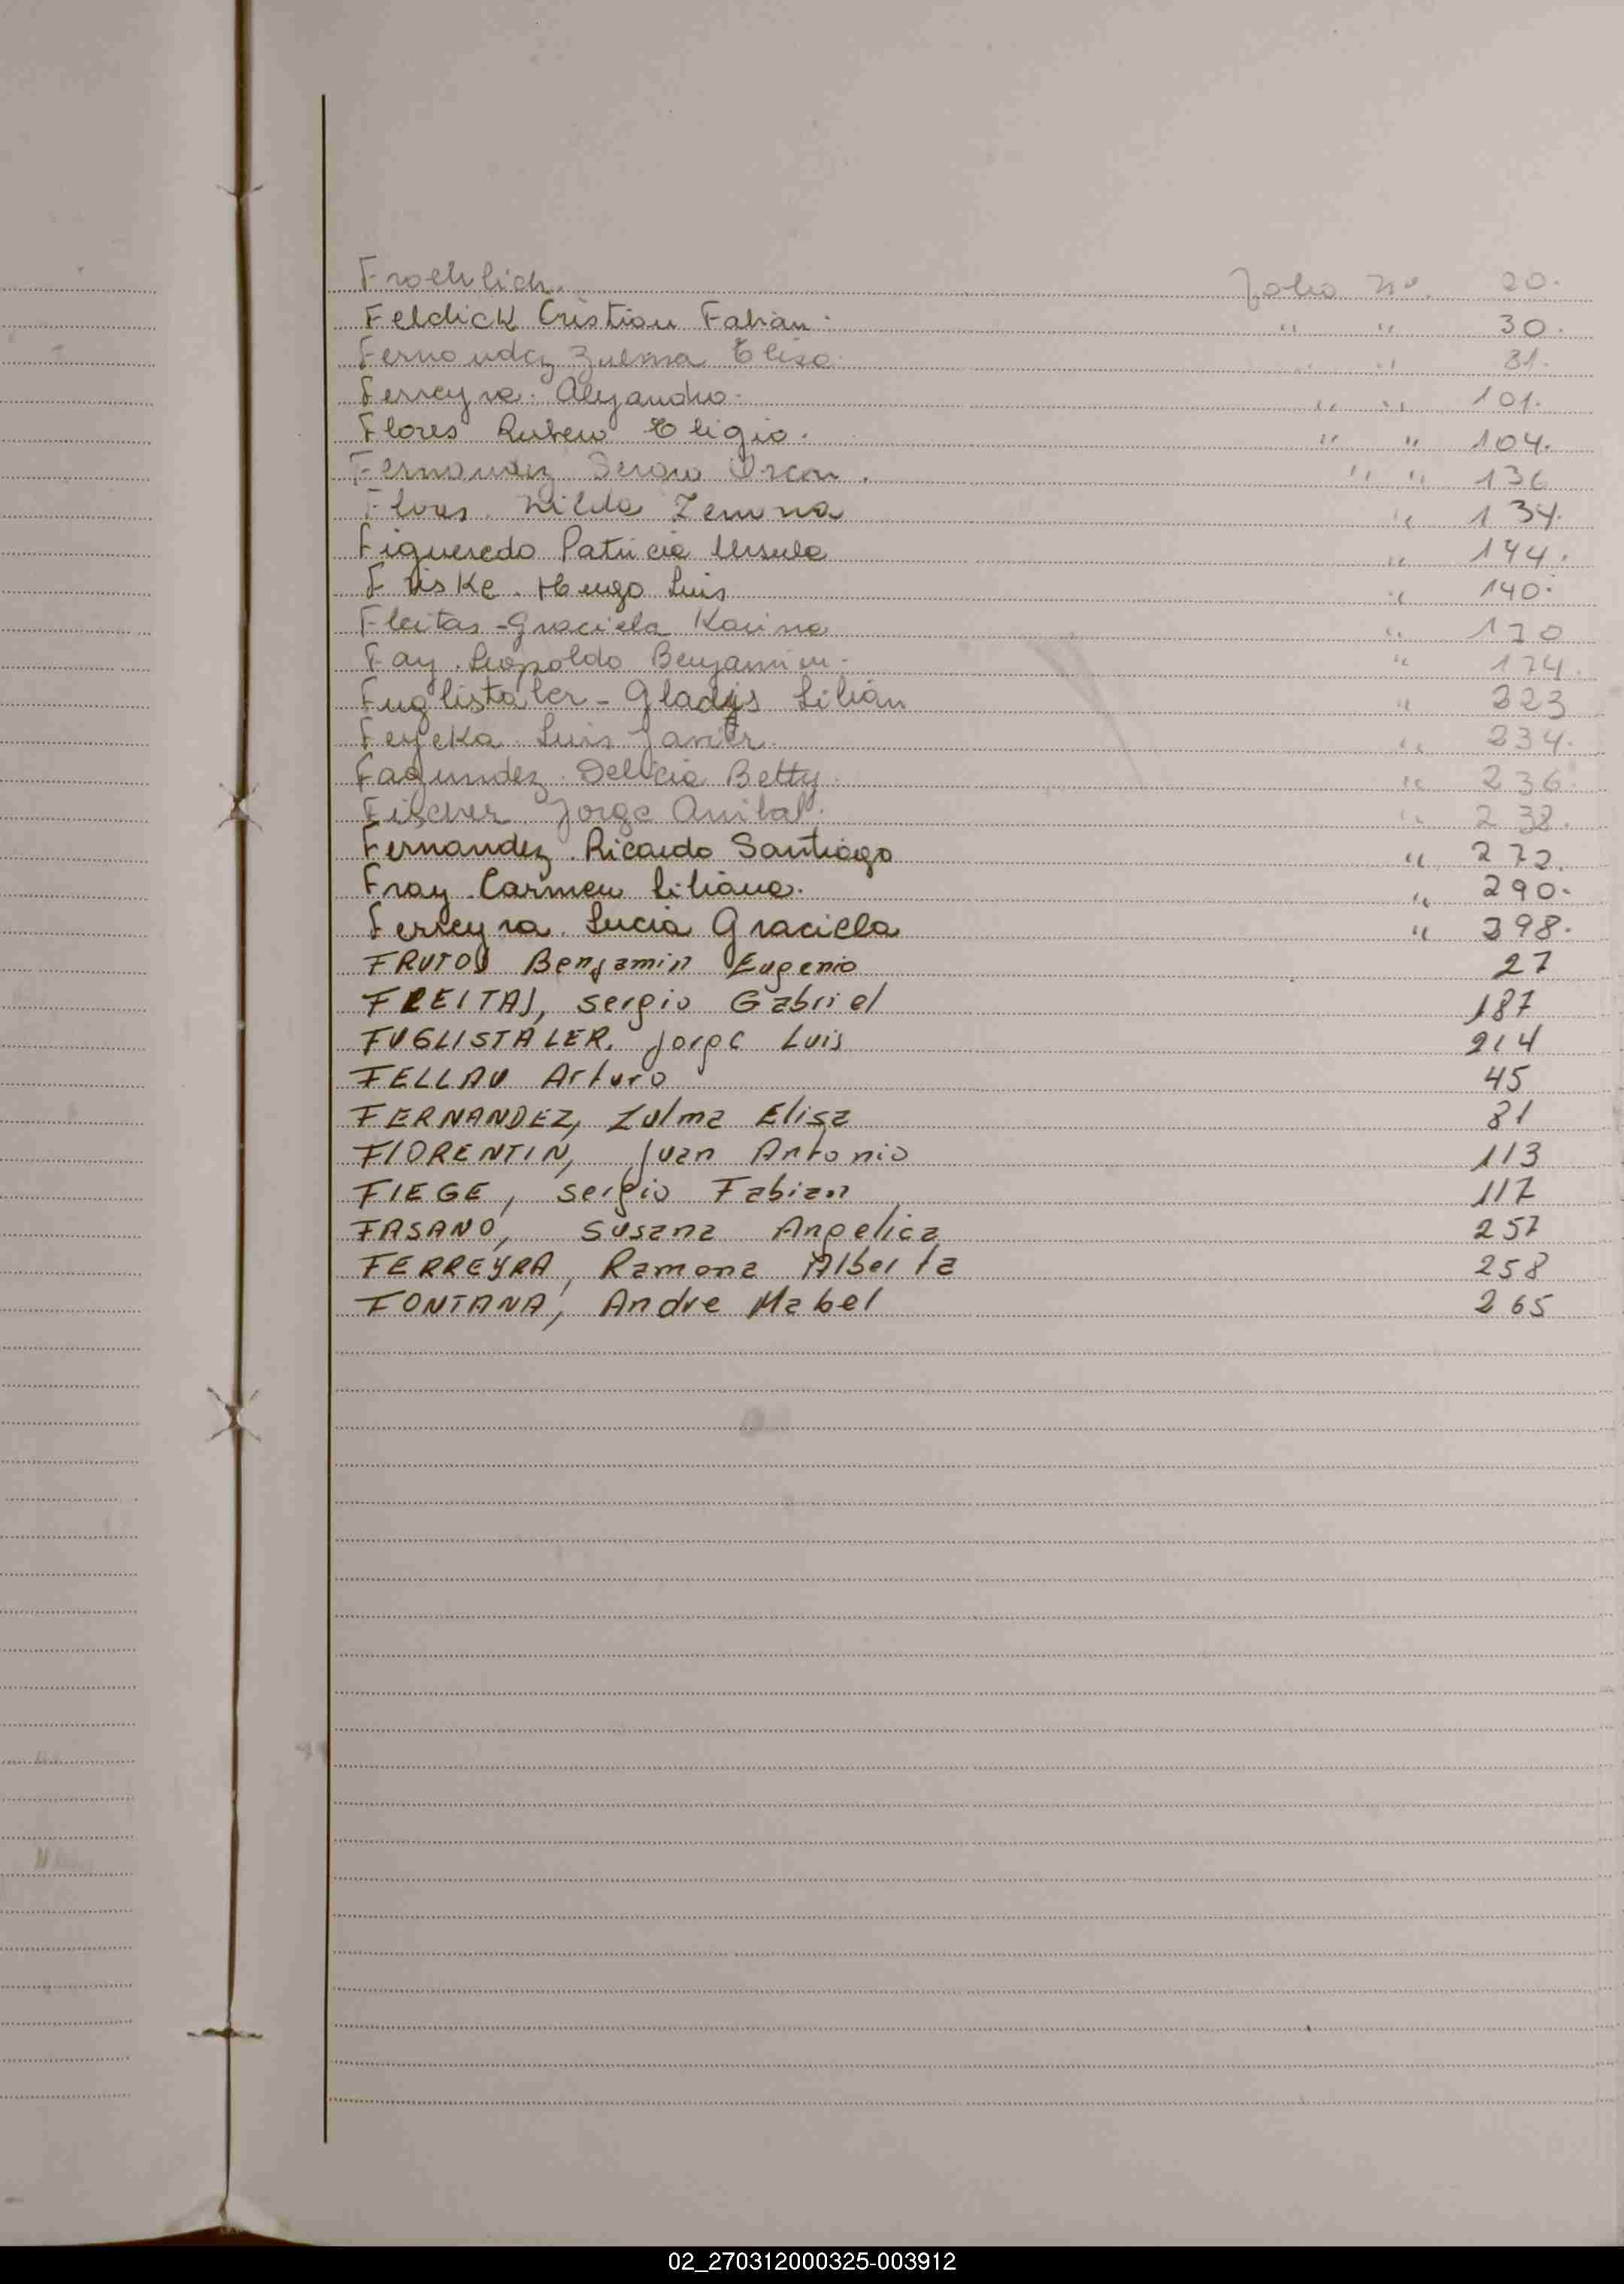 Froehlich. Folio Nº. 20.
Feldick Cristian Fabian. " " 30.
Fernandez Zulma Elisa. " " 81.
Ferreyra. Alejandro. " " 101.
Flores Ruben Eligio. " " 104.
Fernandez Sergio Oscar. " " 136
Flores. Nilda Zemira " 134.
Figueredo Patricia Ursula " 144.
Friske. Hugo Luis " 140.
Fleitas - Graciela Karina " 170
Fay. Leopoldo Benjamin. " 174.
Fuglistaler - Gladys Lilián " 223
Feyeka. Luis Javier. " 234.
Fagundez. Delicia Betty. " 236.
Fischer Jorge Anibal. " 238.
Fernandez. Ricardo Santiago " 272.
Fray. Carmen Liliana. " 290.
Ferreyra. Lucia Graciela " 298.
FRUTOS Benjamin Eugenio 27
FREITAS, Sergio Gabriel 187
FUGLISTALER. Jorge Luis 214
FELLAU Arturo 45
FERNANDEZ, Zulma Elisa 81
FIORENTIN, Juan Antonio 113
FIEGE, Sergio Fabian 117
FASANO, Susana Angelica 257
FERREYRA, Ramona Alberta 258
FONTANA, Andre Mabel 265
02_270312000325-003912